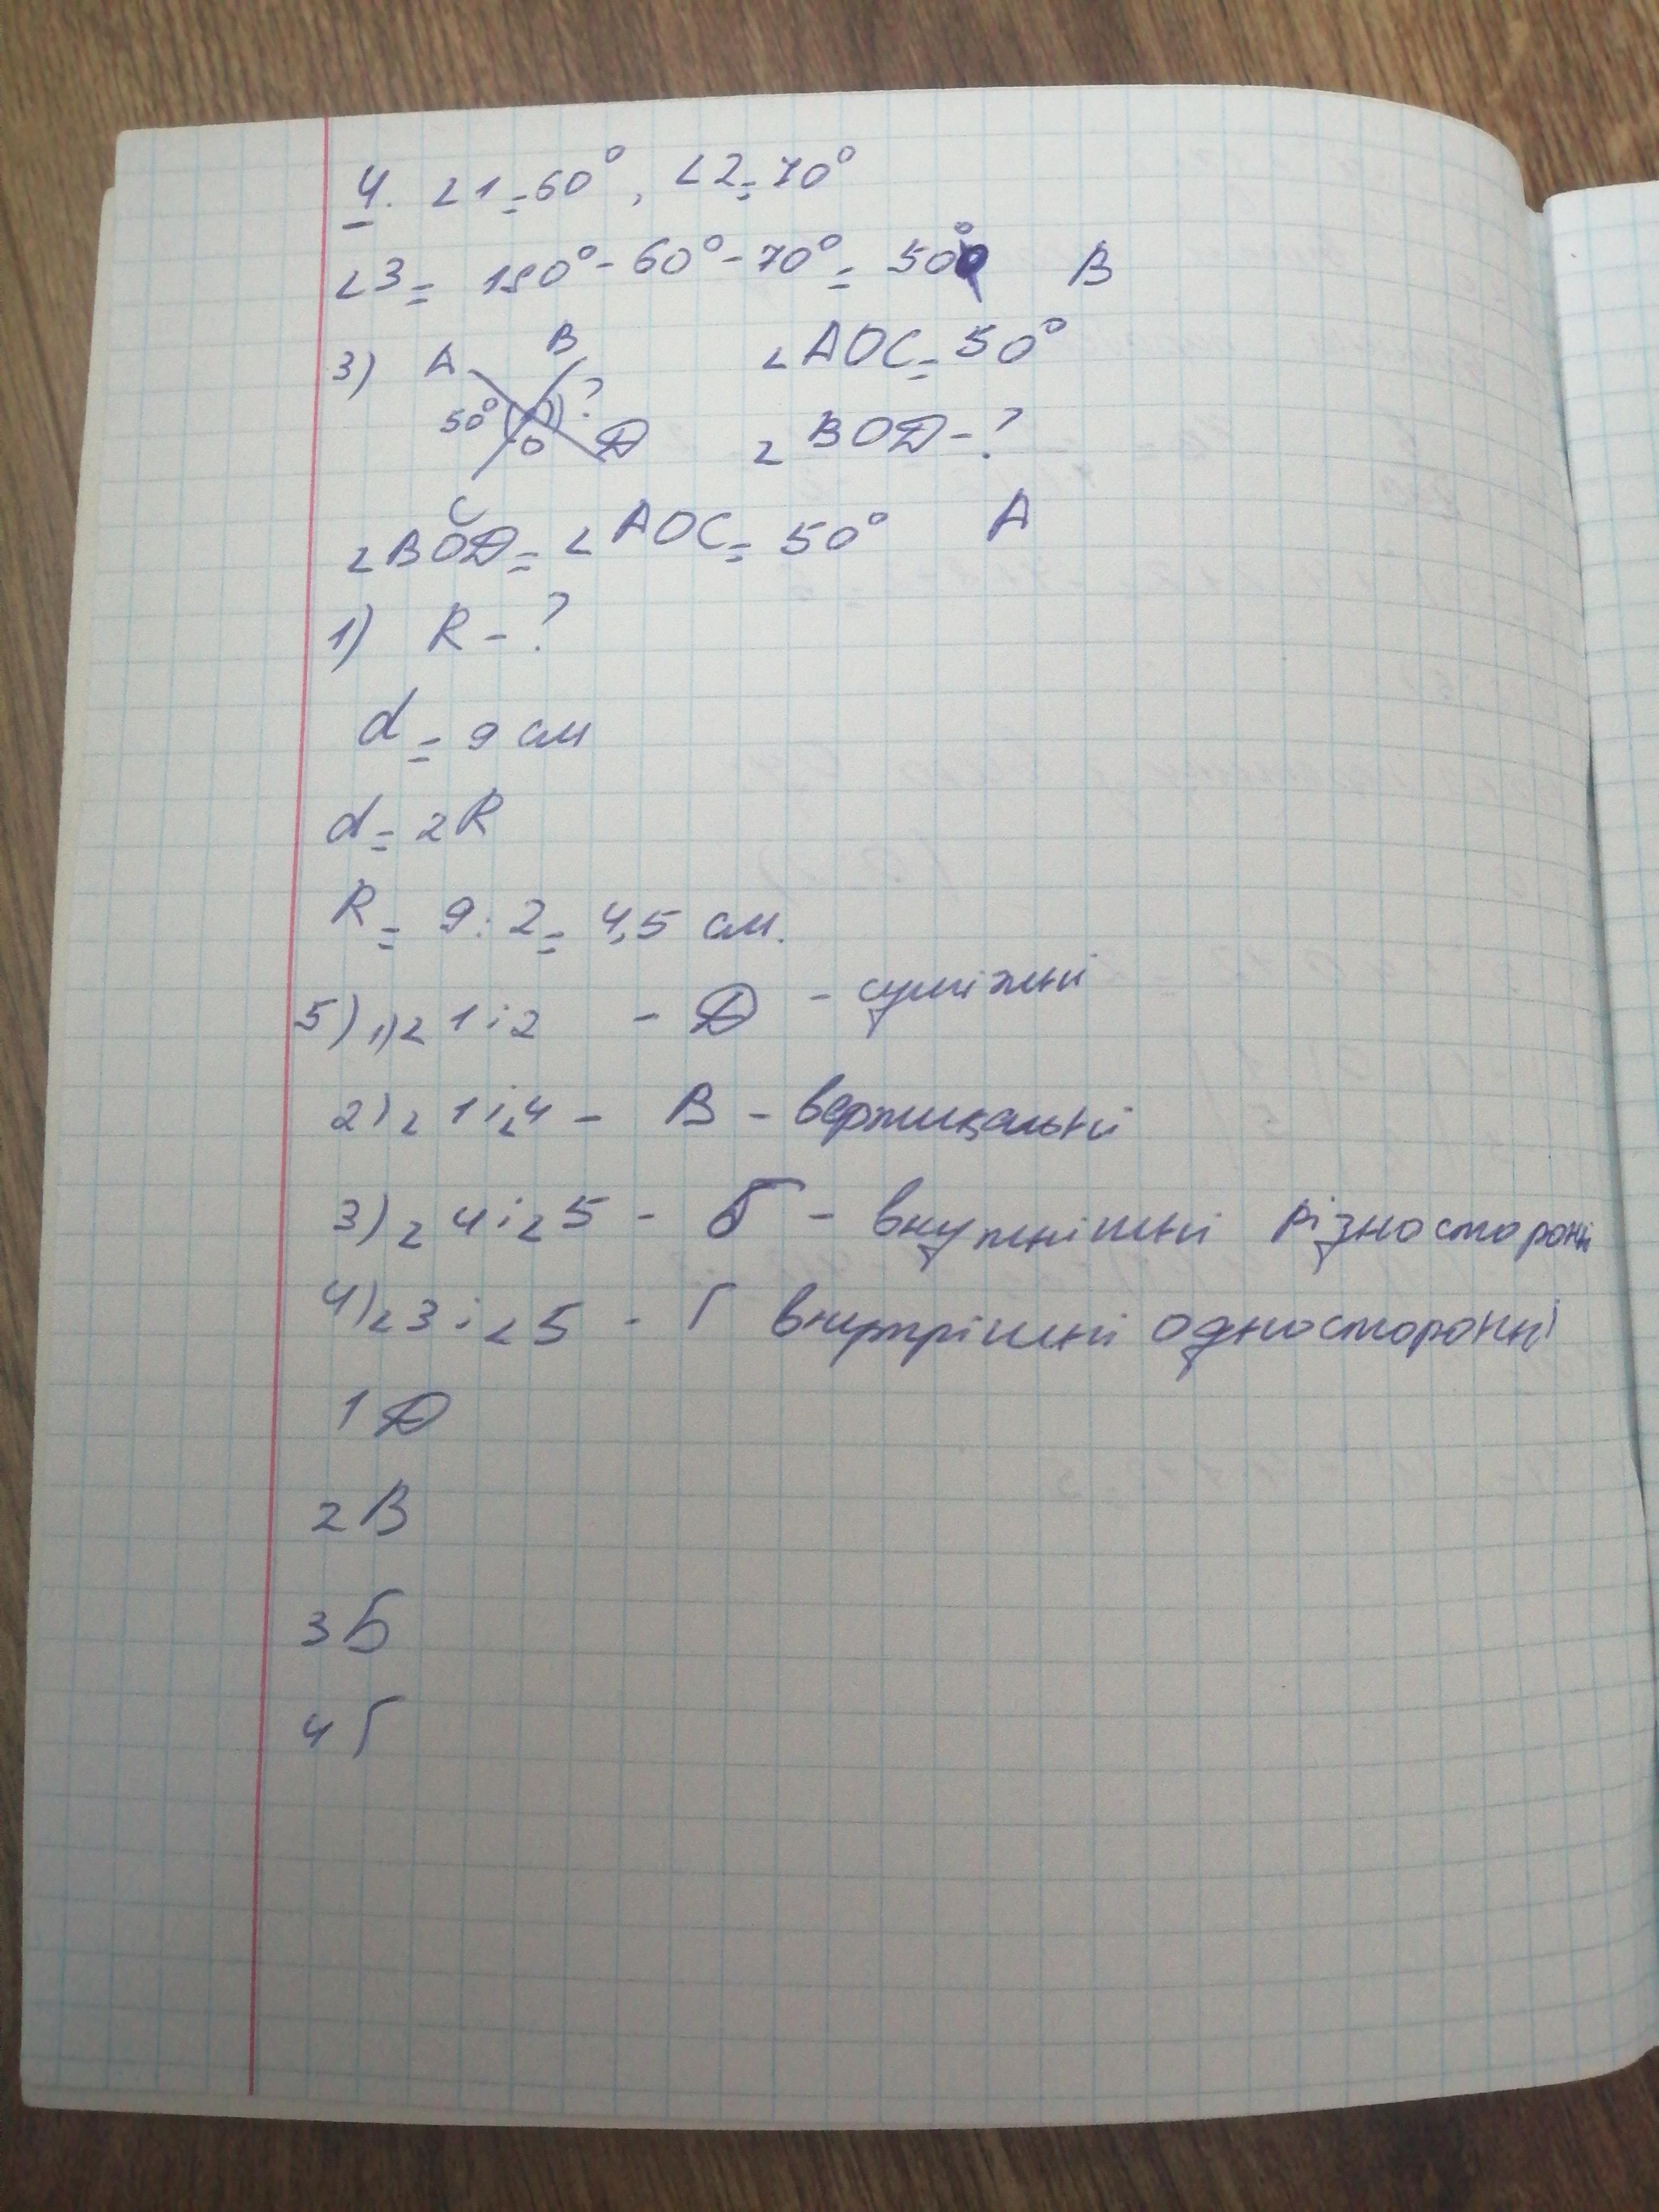 4. ∠1=60°, ∠2=70°
∠3= 180°-60°-70°= 50° В
3) А В 50° ? О Д С ∠АОС=50°
∠ВОД-?
∠ВОД=∠АОС=50° А
1) R-?
d=9 см
d=2R
R=9:2=4,5 см.
5) 1)∠1і2 - Д - суміжні
2)∠1і∠4 - В - вертикальні
3)∠4і∠5 - Б - внутрішні різносторонні
4)∠3і∠5 - Г внутрішні односторонні
1 Д
2 В
3 Б
4 Г